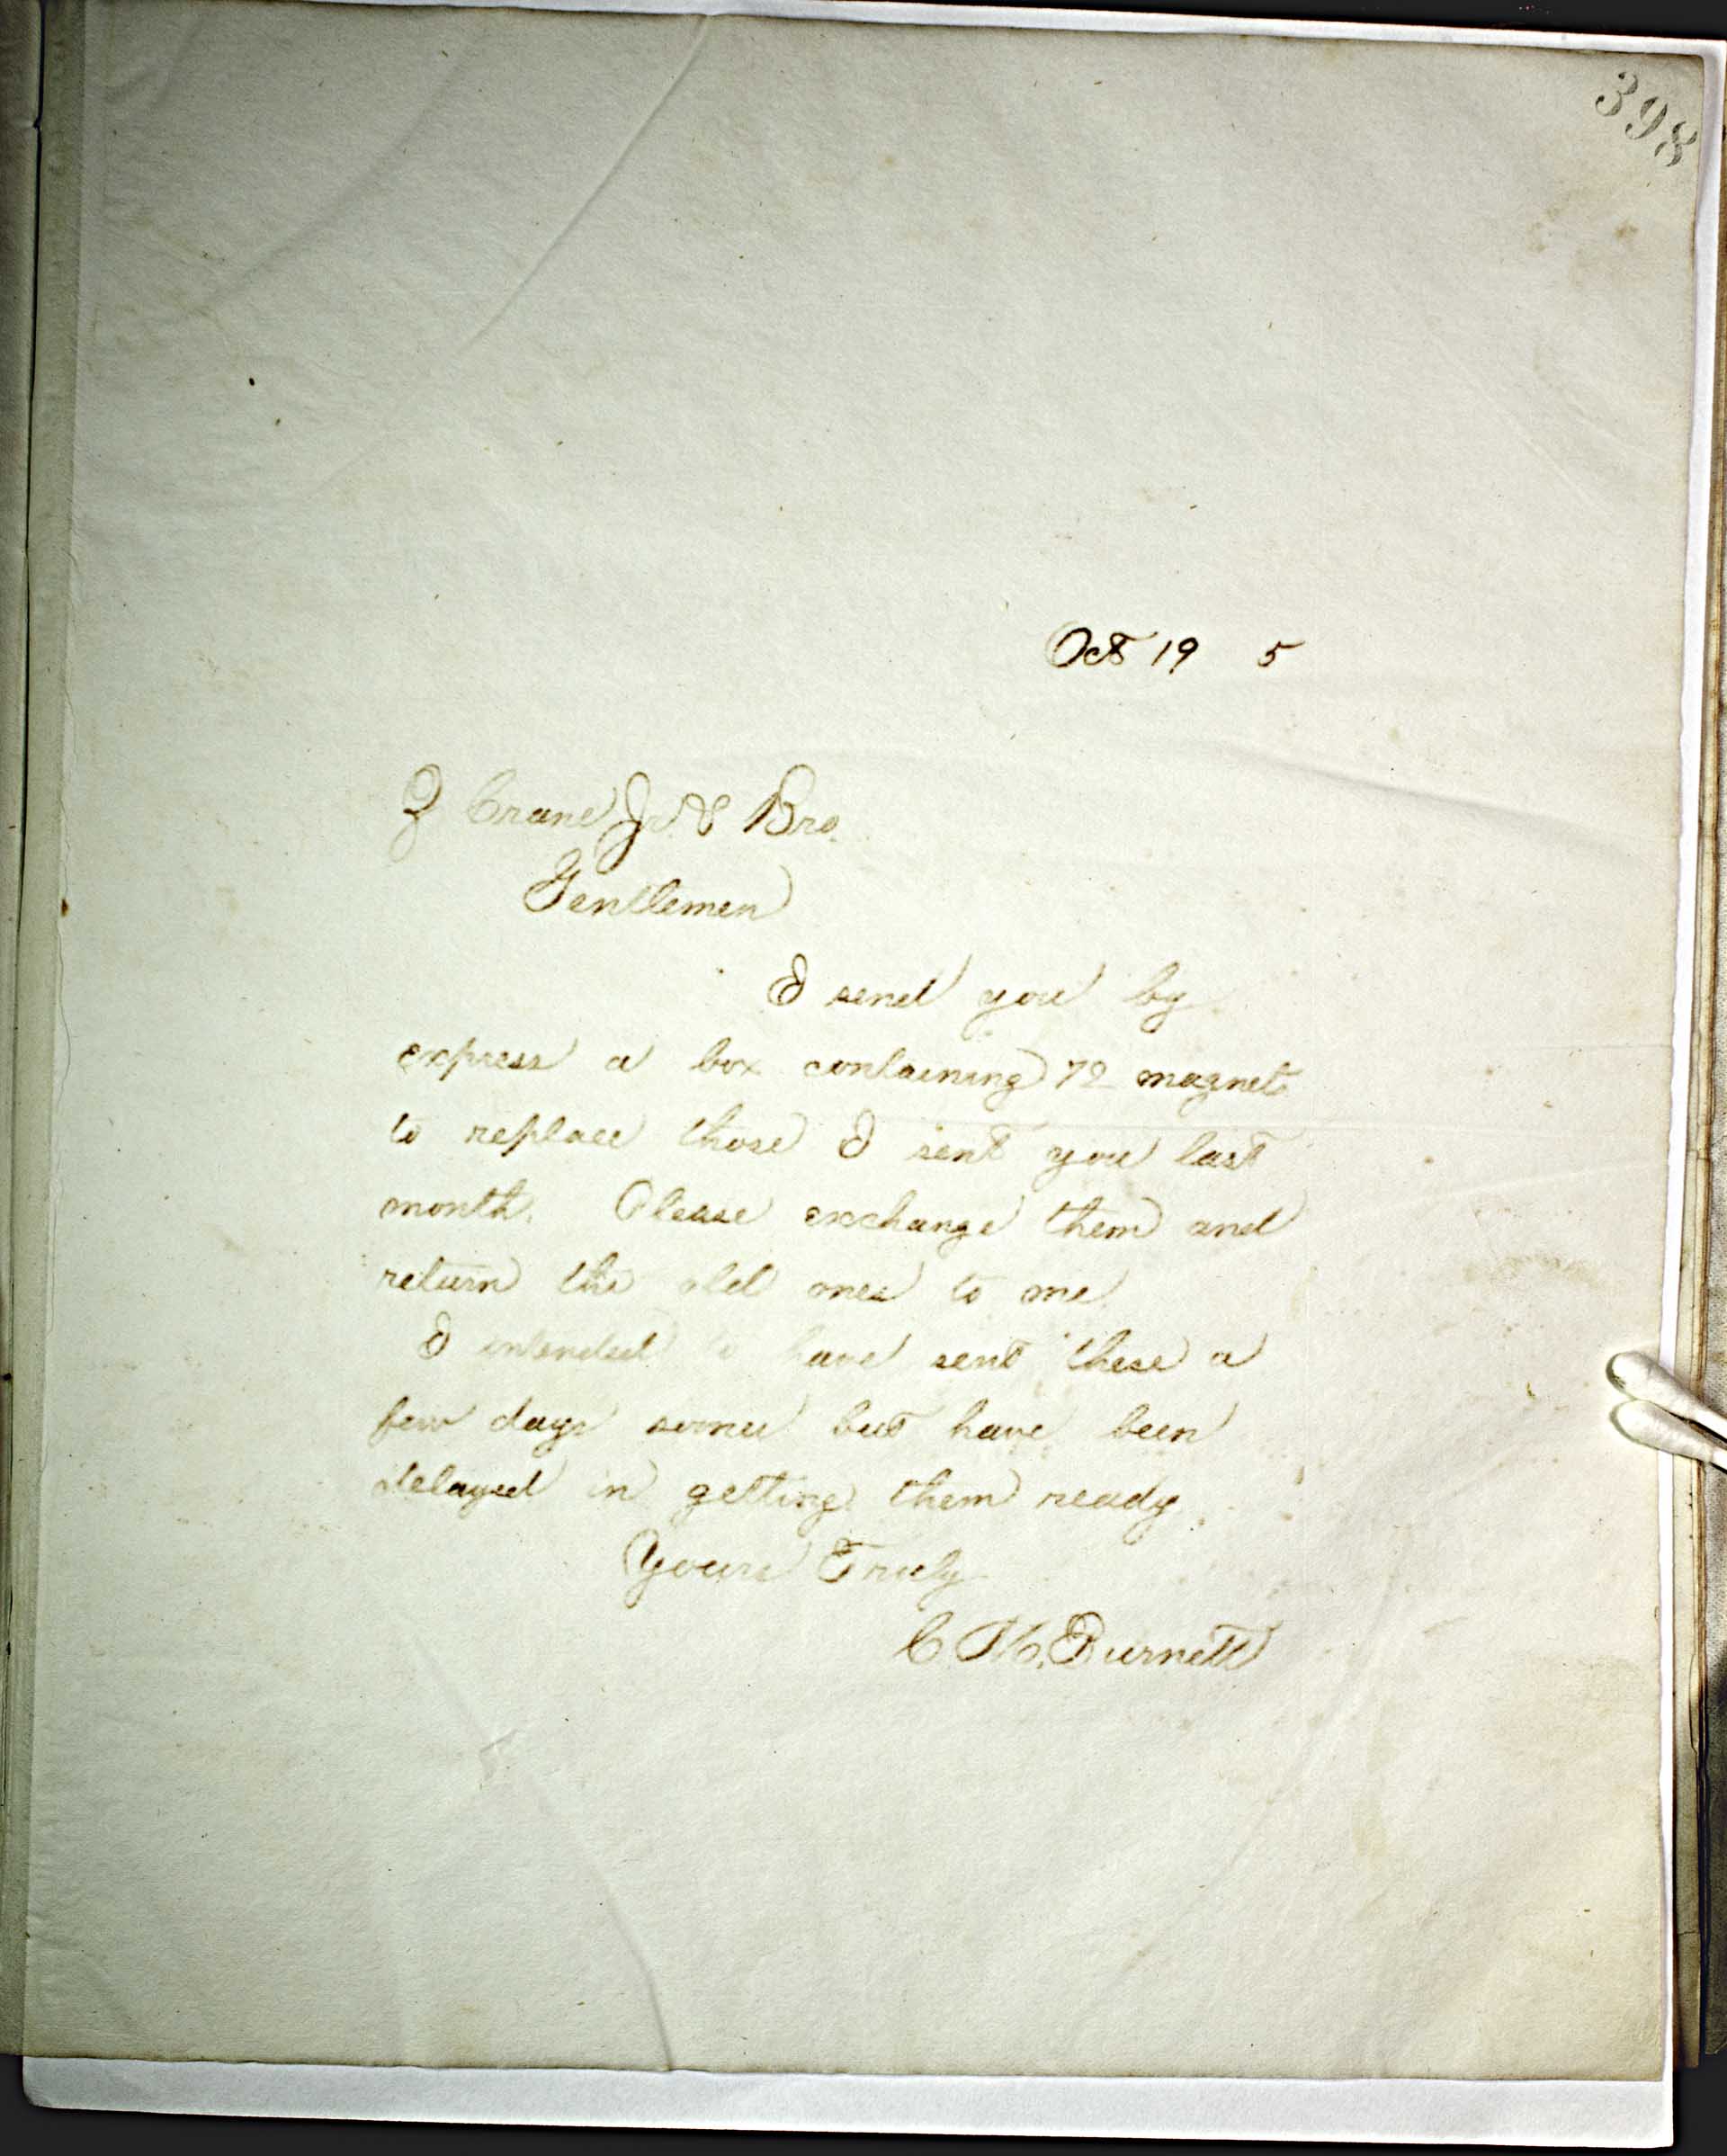 398
Oct 19 5
Z Crane Jr. & Bro.
Gentlemen
I send you by
express a box containing 72 magnets
to replace those I sent you last
month. Please exchange them and
return the old ones to me
I intended to have sent these a
few days since but have been
delayed in getting them ready.
Yours Truly
C. H. Burnett